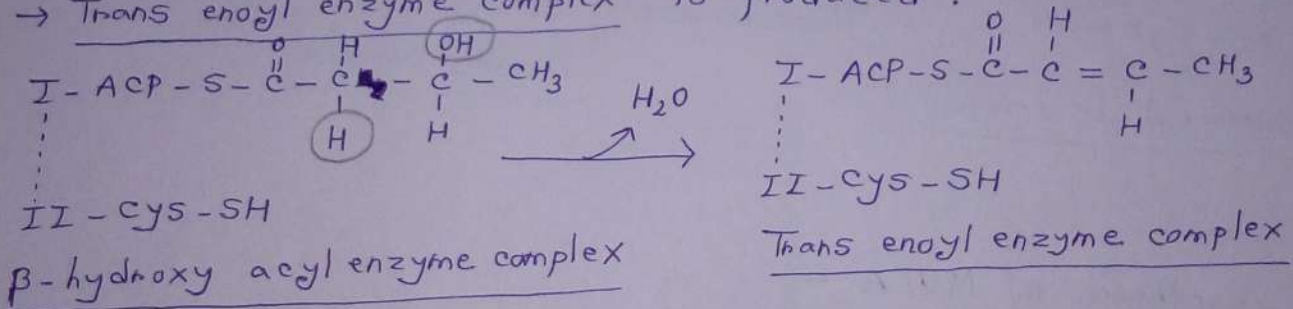 → Trans enoyl enzyme complex is produced.
O H OH
I - ACP - S - C - C - C - CH3
H H
II - Cys - SH
β-hydroxy acyl enzyme complex
H2O
O H
I - ACP - S - C - C = C - CH3
H
II - Cys - SH
Trans enoyl enzyme complex